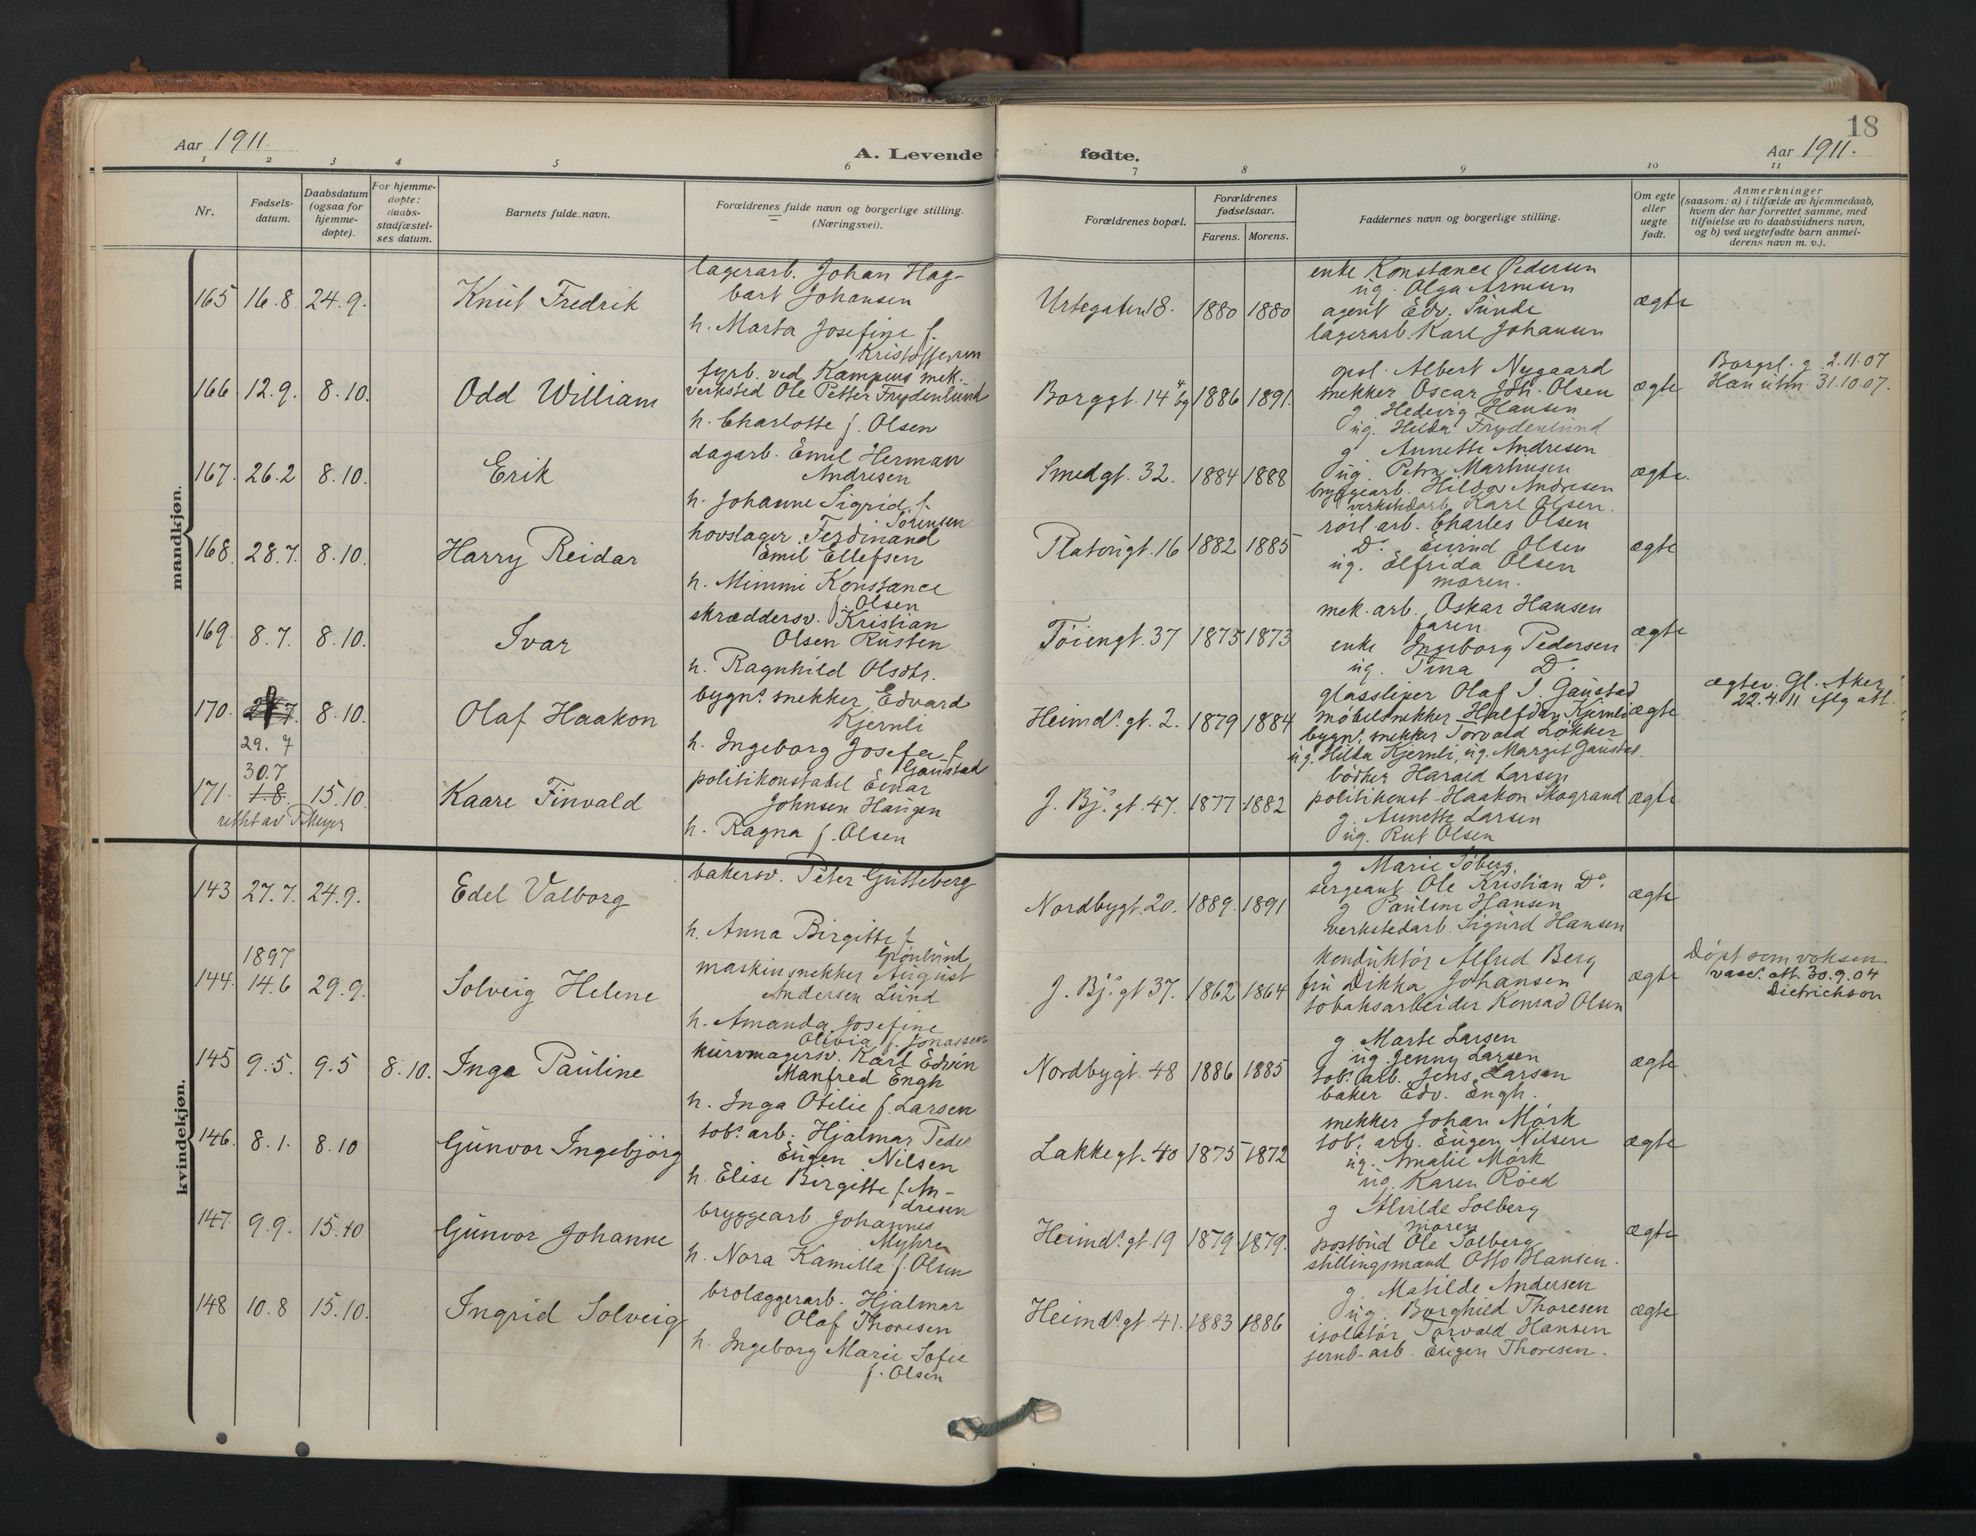 18
Aar 1911.
A. Levende fødte.
Aar 1911.
1 2 3 4 5 6 7 8 9 10 11
Nr.
Fødsels-
datum.
Daabsdatum
(ogsaa for
hjemme-
døpte).
For hjemme-
døpte:
daabs-
stadfæstel-
ses datum.
Barnets fulde navn.
Forældrenes fulde navn og borgerlige stilling.
(Næringsvei).
Forældrenes bopæl.
Forældrenes
fødselsaar.
Farens. Morens.
Faddernes navn og borgerlige stilling.
Om egte
eller
uegte
født.
Anmerkninger
(saasom: a) i tilfælde av hjemmedaab,
hvem der har forrettet samme, med
tilføielse av to daabsvidners navn,
og b) ved uegtefødte barn anmel-
derens navn m. v.).
mandkjøn.
165 16.8 24.9. Knut Fredrik
lagerarb. Johan Hag-
bart Johansen
h. Marta Josefine f.
Kristoffersen
Urtegaten 18. 1880 1880
enke Konstance Pedersen
ug. Olga Arnesen
agent Edv. Sunde
lagerarb. Karl Johansen
ægte
166 12.9. 8.10. Odd William
fyrb. ved Kampens mek.
verksted Ole Petter Frydenlund
h. Charlotte f. Olsen
Borggt. 14 1886 1891.
Albert Nygaard
snekker Oscar Joh. Olsen
g. Hedevig Hansen
ug. Hilda Frydenlund
ægte
Borgrl. g. 2.11.07
Han utm. 31.10.07.
167. 26.2 8.10. Erik
dagarb. Emil Herman
Andresen
h. Johanne Sigrid f.
Sørensen
Smedgt. 32. 1884 1888
g. Annette Andresen
ug. Petra Martinsen
bryggearb. Hildor Andresen
verkstedarb. Karl Olsen.
ægte.
168. 28.7. 8.10. Harry Reidar
hovslager. Ferdinand
Emil Ellefsen
h. Mimmi Konstance
f. Olsen
Platougt. 16 1882 1885
rørl. arb. Charles Olsen
Do. Eivind Olsen
ug. Elfrida Olsen
moren.
ægte
169. 8.7. 8.10. Ivar
skræddersv. Kristian
Olsen Rusten
h. Ragnhild Olsdtr.
Tøiengt. 37 1875 1873
mek. arb. Oskar Hansen
faren
enke Ingeborg Pedersen
ug. Tina Do.
ægte
170. 8.10. Olaf Haakon
29.7
bygn.s snekker Edvard
Kjernli
h. Ingeborg Josefa f.
Gaustad
Heimd.s gt. 2. 1879 1884
glassliper Olaf J. Gaustad
møbelsnekker Halfdan Kjernli
bygn.s snekker Torvald Løkker
ug. Hilda Kjernli, ug. Margit Gaustad.
ægte
ægtev. Gl. Aker
22.4.11 iflg att.
30.7
171. 1.8. 15.10. Kaare Finvald
rettet av
politikonstabel Einar
Johnsen Haugen
h. Ragna f. Olsen
J. Bj.s gt. 47. 1877 1882
bødker Harald Larsen
politikonst. Haakon Skogrand
g. Annette Larsen
ug. Rut Olsen
ægte
kvindekjøn.
143 27.7. 24.9. Edel Valborg
bakersv. Peter Gutteberg
h. Anna Birgitte f.
Grønlund
Nordbygt. 20. 1889. 1891
g. Marie Søberg.
sergeant Ole Kristian Do.
g. Pauline Hansen
verkstedarb. Sigurd Hansen
ægte
1897
144. 14.6 29.9. Solveig Helene
maskinsnekker August
Andersen Lund
h. Amanda Josefine
Olivia f. Jonassen
J. Bj.s gt 37. 1862 1864
konduktør Alfred Berg
fru Dikka Johansen
tobaksarbeider Konrad Olsen
ægte
Døpt som voksen
vacc. att. 30.9.04
Dietrichson
145 9.5. 9.5 8.10. Inga Pauline
kurvmagersv. Karl Edvin
Manfred Engh
h. Inga Otilie f. Larsen
Nordbygt. 48 1886 1885
g. Marte Larsen
ug. Jenny Larsen
tob.s arb. Jens Larsen
baker Edv. Engh.
ægte
146. 8.1. 8.10 Gunvor Ingebjørg
tob.s arb. Hjalmar Peder
Eugen Nilsen
h. Elise Birgitte f. An-
dresen
Lakkegt. 40 1875 1872
snekker Johan Mørk
tob.s arb. Eugen Nilsen
ug. Amalie Mørk
ug. Karen Røed
ægte
147. 9.9. 15.10 Gunvor Johanne
bryggearb. Johannes
Myhre
h. Nora Kamilla f. Olsen
Heimd.s gt. 19 1879 1879.
g. Alvilde Solberg
moren
postbud Ole Solberg
stillingsmand Otto Hansen.
ægte
148 10.8 15.10. Ingrid Solveig
brolæggerarb. Hjalmar
Olaf Thoresen
h. Ingeborg Marie Sofie
f. Olsen
Heimd.s gt. 41. 1883 1886
g. Matilde Andersen
ug. Borghild Thoresen
isolatør Torvald Hansen
jernb. arb. Eugen Thoresen.
ægte